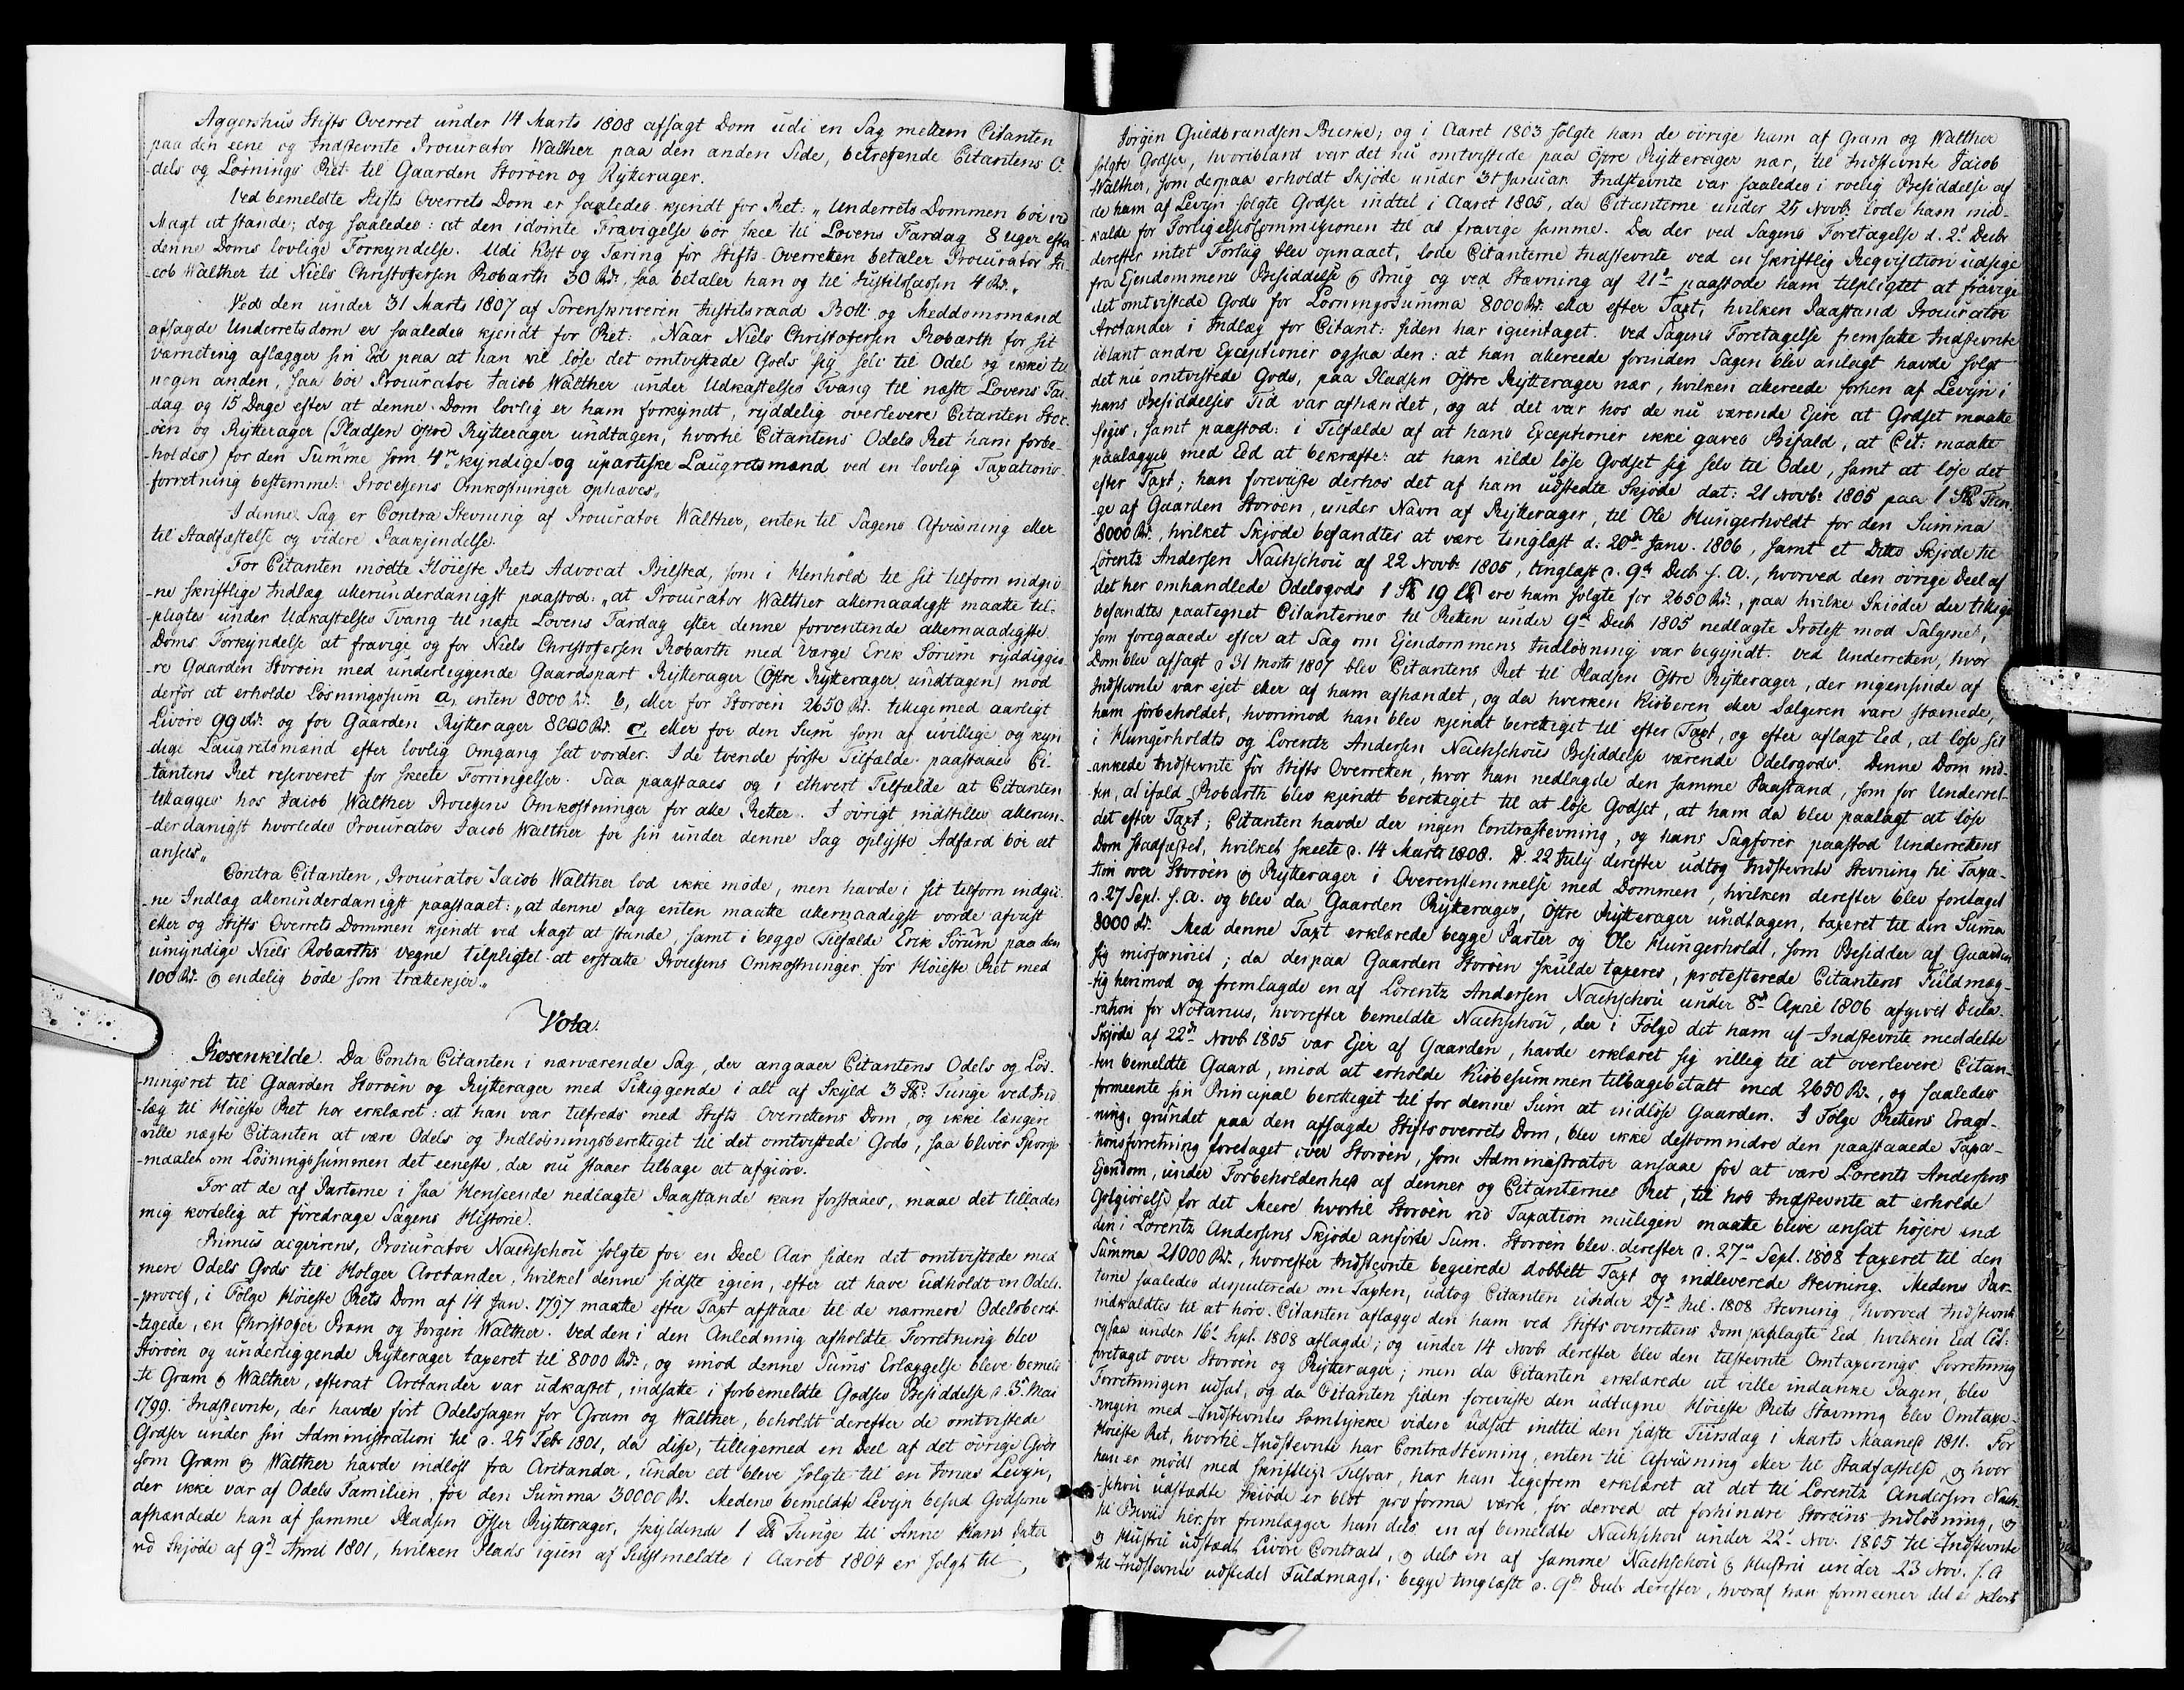 Aggershus Stifts Overret under 14 Marts 1808 afsagt Dom udi en Sag mellem Citanten
paa den eene og Indstevnte Procurator Walther paa den anden Side, betræfende Citantens O-
dels og Løsnings Ret til Gaarden Storøen og Rytterager.
Ved bemeldte Stifts Overrets Dom er saaledes kjendt for Ret: „Underrets Dommen bør ved
Magt at stande; dog saaledes: at den idømte Fravigelse bør skee til Lovens Fardag 8 Uger efter
denne Doms lovlige Forkyndelse. Udi Kost og Tæring for Stifts-Overretten betaler Procurator Ja-
-cob Walther til Niels Christofersen Robarth 30 Rd., saa betaler han og til Justitskassen 4 Rd.„
Ved den under 31 Marts 1807 af Sorenskriveren Justitsraad Boll og Meddomsmænd
afsagde Underretsdom er saaledes kjendt for Ret: „Naar Niels Christofersen Robarth for sit
værneting aflægger sin Ed paa at han vil løse det omtvistede Gods sig selv til Odel og ikke til
nogen anden, saa bør Procurator Jacob Walther under Udkastelses Tvang til næste Lovens Far-
dag og 15 Dage efter at denne Dom lovlig er ham forkyndt, ryddelig overlevere Citanten Stor-
øen og Rytterager (Pladsen Østre Rytterager undtagen, hvortil Citantens Odels Ret ham forbe-
-holdes) for den Summe som 4re kyndige og upartiske Laugretsmænd ved en lovlig Taxations-
forretning bestemme. Processens Omkostninger ophæves„
I denne Sag er Contra Stevning af Procurator Walther, enten til Sagens Afviisning eller
til Stadfæstelse og videre Paakjendelse.
For Citanten mødte Høieste Rets Advocat Bilsted, som i Henhold til sit tilforn indgiv-
-ne skriftlige Indlæg allerunderdanigst paastod: „at Procurator Walther allernaadigst maatte til-
-pligtes under Udkastelses Tvang til næste Lovens Fardag efter denne forventende allernaadigste
Doms Forkyndelse at fravige og for Niels Christofersen Robarth med Værge Erik Sørum ryddiggiø-
-re Gaarden Storøen med underliggende Gaardspart Rytterager (Østre Rytterager undtagen) mod
derfor at erholde Løsningssum a, enten 8000 Rd. b, eller for Storøen 2650 Rd. tilligemed aarligt
Livøre 99 Rd. og for Gaarden Rytterager 8000 Rd. c, eller for den Sum som af uvillige og kyn
dige Laugretsmænd efter lovlig Omgang sat vorder. I de tvende første Tilfælde paastaaes Ci-
tantens Ret reserveret for skeete Forringelser. Saa paastaaes og i ethvert Tilfælde at Citanten
tillægges hos Jacob Walther Processens Omkostninger for alle Retter. I øvrigt indstilles allerun-
-derdanigst hvorledes Procurator Jacob Walther for sin under denne Sag oplyste Adfærd bør at
ansees„
Contra Citanten, Procurator Jacob Walther lod ikke møde, men havde i sit tilforn indgiv-
ne Indlæg allerunderdanigst paastaaet: „at denne Sag enten maatte allernaadigst vorde afviist
eller og Stifts Overrets Dommen kjendt ved Magt at stande, samt i begge Tilfælde Erik Sørum paa den
umyndige Niels Robarths Vegne tilpligtet at erstatte Processens Omkostninger for Høieste Ret med
100 Rd. og endelig bøde som trættekjer.„
Vota.
Rosenkilde. Da Contra Citanten i nærværende Sag, der angaaer Citantens Odels og Løs-
-ningsret til Gaarden Storøen og Rytterager med Tilliggende i alt af Skyld 3 Tunge ved Ind
læg til Høieste Ret har erklæret: at han var tilfreds med Stifts Overrettens Dom, og ikke længere
ville nægte Citanten at være Odels og Indløsningsberettiget til det omtvistede Gods, saa bliver Spørgs-
-maalet om Løsningssummen det eeneste, der nu staaer tilbage at afgiøre.
For at de af Parterne i saa Henseende nedlagte Paastande kan forstaaes, maae det tillades
mig kortelig at foredrage Sagens Historie.
Primus acqvirens, Procurator Nachschou solgte for en Deel Aar siden det omtvistede med
mere Odels Gods til Holger Arctander, hvilket denne sidste igien, efter at have udholdt en Odels-
-proces, i Følge Høieste Rets Dom af 14 Jan. 1797 maatte efter Taxt afstaae til de nærmere Odelsberet-
-tigede, en Christoffer Gram og Jørgen Walther. Ved den i den Anledning afholdte Forretning blev
Storøen og underliggende Rytterager taxeret til 8000 Rd., og imod denne Sums Erlæggelse bleve bemeld-
-te Gram og Walther, efterat Arctander var udkastet, indsatte i forbemeldte Godses Besiddelse d. 3 Mai
1799. Indstevnte, der havde ført Odelssagen for Gram og Walther, beholdt derefter de omtvistede
Godser under sin Administration til d. 25 Febr 1801, da disse, tilligemed en Deel af det øvrige Gods
som Gram og Walther havde indløst fra Arctander, under eet bleve solgte til en Jonas Levyn,
der ikke var af Odels Familien, for den Summa 30000 Rd. Medens bemeldte Levyn besad Godserne
afhændede han af samme Pladsen Østre Rytterager, skyldende 1 Tunge til Anne Hans Datter
ved Skjøde af 9de April 1801, hvilken Plads igien af Sidstmeldte i Aaret 1804 er solgt til
Jørgen Guldbrandsen Burke; og i Aaret 1803 solgte han de øvrige ham af Gram og Walther
solgte Godser, hvoriblant var det nu omtvistede paa Østre Rytterager nær, til Indstevnte Jacob
Walther, som derpaa erholdt Skjøde under 31 Januar. Indstevnte var saaledes i roelig Besiddelse af
de ham af Levyn solgte Godser indtil i Aaret 1805, da Citanterne under 25 Novb. lode ham ind-
-kalde for ForligelsesCommissionen til at fravige samme. Da der ved Sagens Foretagelse d. 2d Decbr
derefter intet Forlig blev opnaaet, lode Citanterne Indstevnte ved en skriftlig Reqvisition udsige
fra Ejendommens Besiddelse og Brug og ved Stævning af 21de paastode ham tilpligtet at fravige
det omtvistede Gods for Løsningssumma 8000 Rd. eller efter Taxt, hvilken Paastand Procurator
Arctander i Indlæg for Citant: siden har igientaget. Ved Sagens Foretagelse fremsatte Indstevnte
iblant andre Exceptioner ogsaa den: at han allereede forinden Sagen blev anlagt havde solgt
det nu omtvistede Gods, paa Pladsen Østre Rytterager nær, hvilken allereede forhen af Levyn i
hans Besiddelses Tid var afhændet, og at det var hos de nu værende Ejere at Godset maatte
søges, samt paastod: i Tilfælde af at hans Exceptioner ikke gaves Bifald, at Cit: maatte
paalægges med Eed at bekræfte: at han vilde løse Godset sig selv til Odel, samt at løse det
efter Taxt; han foreviiste derhos det af ham udstedte Skjøde dat: 21 Novbr 1805 paa 1 Tun-
-ge af Gaarden Storøen, under Navn af Rytterager, til Ole Hungerholdt for den Summa
8000 Rd., hvilket Skjøde befandtes at være tinglæst d. 20de Janv. 1806, samt et Ditto Skjøde til
Lorentz Andersen Nachschou af 22 Novbr 1805, tinglæst d. 9de Decb. s. A., hvorved den øvrige Deel af
det her omhandlede Odelsgods 1 19 ere ham solgte for 2650 Rd., paa hvilke Skiøder der tillige
befandtes paategnet Citanternes til Retten under 9de Decb 1805 nedlagte Protest mod Salgene,
som foregaaede efter at Sag om Ejendommens Indløsning var begyndt. Ved Underretten, hvor
Dom blev afsagt d 31 Marts 1807 blev Citantens Ret til Pladsen Østre Rytterager, der ingensinde af
Indstevnte var ejet eller af ham afhændet, og da hverken Kiøberen eller Sælgeren vare stævnede,
ham forbeholdet, hvorimod han blev kjendt berettiget til efter Taxt, og efter aflagt Eed, at løse det
i Hungerholdts og Lorentz Andersen Nachschous Besiddelse værende Odelsgods. Denne Dom ind-
-ankede Indstevnte for Stifts Overretten, hvor han nedlagde den samme Paastand, som for Underret-
-ten, at ifald Robarth blev kjendt berettiget til at løse Godset, at ham da blev paalagt at løse
det efter Taxt; Citanten havde der ingen Contrastevning, og hans Sagfører paastod Underrettens
Dom stadfæstet, hvilket skeete d. 14 Marts 1808. D. 22 July derefter udtog Indstevnte Stevning til Taxa-
tion over Storøen og Rytterager i Overensstemmelse med Dommen, hvilken derefter blev foretaget
d. 27 Sept. s. A. og blev da Gaarden Rytterager, Østre Rytterager undtagen, taxeret til den Summa
8000 Rd. Med denne Taxt erklærede begge Parter og Ole Hungerholdt, som Besidder af Gaarden
sig misfornøiet; da derpaa Gaarden Storøen skulde taxeres, protesterede Citantens Fuldmæg-
-tig herimod og fremlagde en af Lorentz Andersen Nachschou under 8de April 1806 afgivet Decla-
ration for Notarius, hvorefter bemeldte Nachschou, der i Følge det ham af Indstevnte meddelte
Skjøde af 22de Novb 1805 var Ejer af Gaarden, havde erklæret sig villig til at overlevere Citan-
ten bemeldte Gaard, imod at erholde Kiøbesummen tilbagebetalt med 2650 Rd., og saaledes
formeente sin Principal berettiget til for denne Sum at indløse Gaarden. I Følge Rettens Eragt-
ning, grundet paa den afsagde Stiftsoverrets Dom, blev ikke destomindre den paastaaede Taxa-
-tionsforretning foretaget over Storøen, som Administrator ansaae for at være Lorents Andersens
Ejendom, under Forbeholdenhed af dennes og Citanternes Ret, til hos Indstevnte at erholde
Godtgiørelse for det Meere hvortil Storøen ved Taxation muligen maatte blive ansat højere end
den i Lorentz Andersens Skjøde anførte Sum. Storøen blev derefter d. 27de Sept. 1808 taxeret til den
Summa 21000 Rd., hvorefter Indstevnte begierede dobbelt Taxt og indleverede Stevning. Medens Par-
terne saaledes disputerede om Taxten, udtog Citanten under 27de Jul. 1808 Stevning, hvorved Indstevnte
indkaldtes til at høre Citanten aflægge den ham ved Stiftsoverrettens Dom paalagte Eed, hvilken Eed Cit:
ogsaa under 16de Sept. 1808 aflagde; og under 14 Novbr derefter blev den tilstevnte Omtaxerings Forretning
foretaget over Storøen og Rytterager; men da Citanten erklærede at ville indanke Sagen, blev
Forretningen udsat, og da Citanten siden foreviiste den udtagne Høieste Rets Stævning blev Omtaxe-
-ringen med Indstevntes Samtykke videre udsat indtil den sidste Tiirsdag i Marts Maaned 1811. For
Høieste Ret, hvortil Indstevnte har Contra Stevning, enten til Afviisning eller til Stadfæstelse, og hvor
han er mødt med skriftligt Tilsvar, har han ligefrem erklæret at det til Lorentz Andersen Nach-
-schou udstædte Skiøde er blot pro forma værk, for derved at forhindre Storøens Indløsning, og
til Beviis herfor fremlægger han dels en af bemeldte Nachschou under 22de Nov. 1805 til Indstevnte
og Hustru udstædt Livøre Contract, og dels en af samme Nachschou og Hustru under 23 Nov. s. A
til Indstevnte udstedet Fuldmagt; begge tinglæste d. 9de Decbr derefter, hvoraf han formeener det er klart